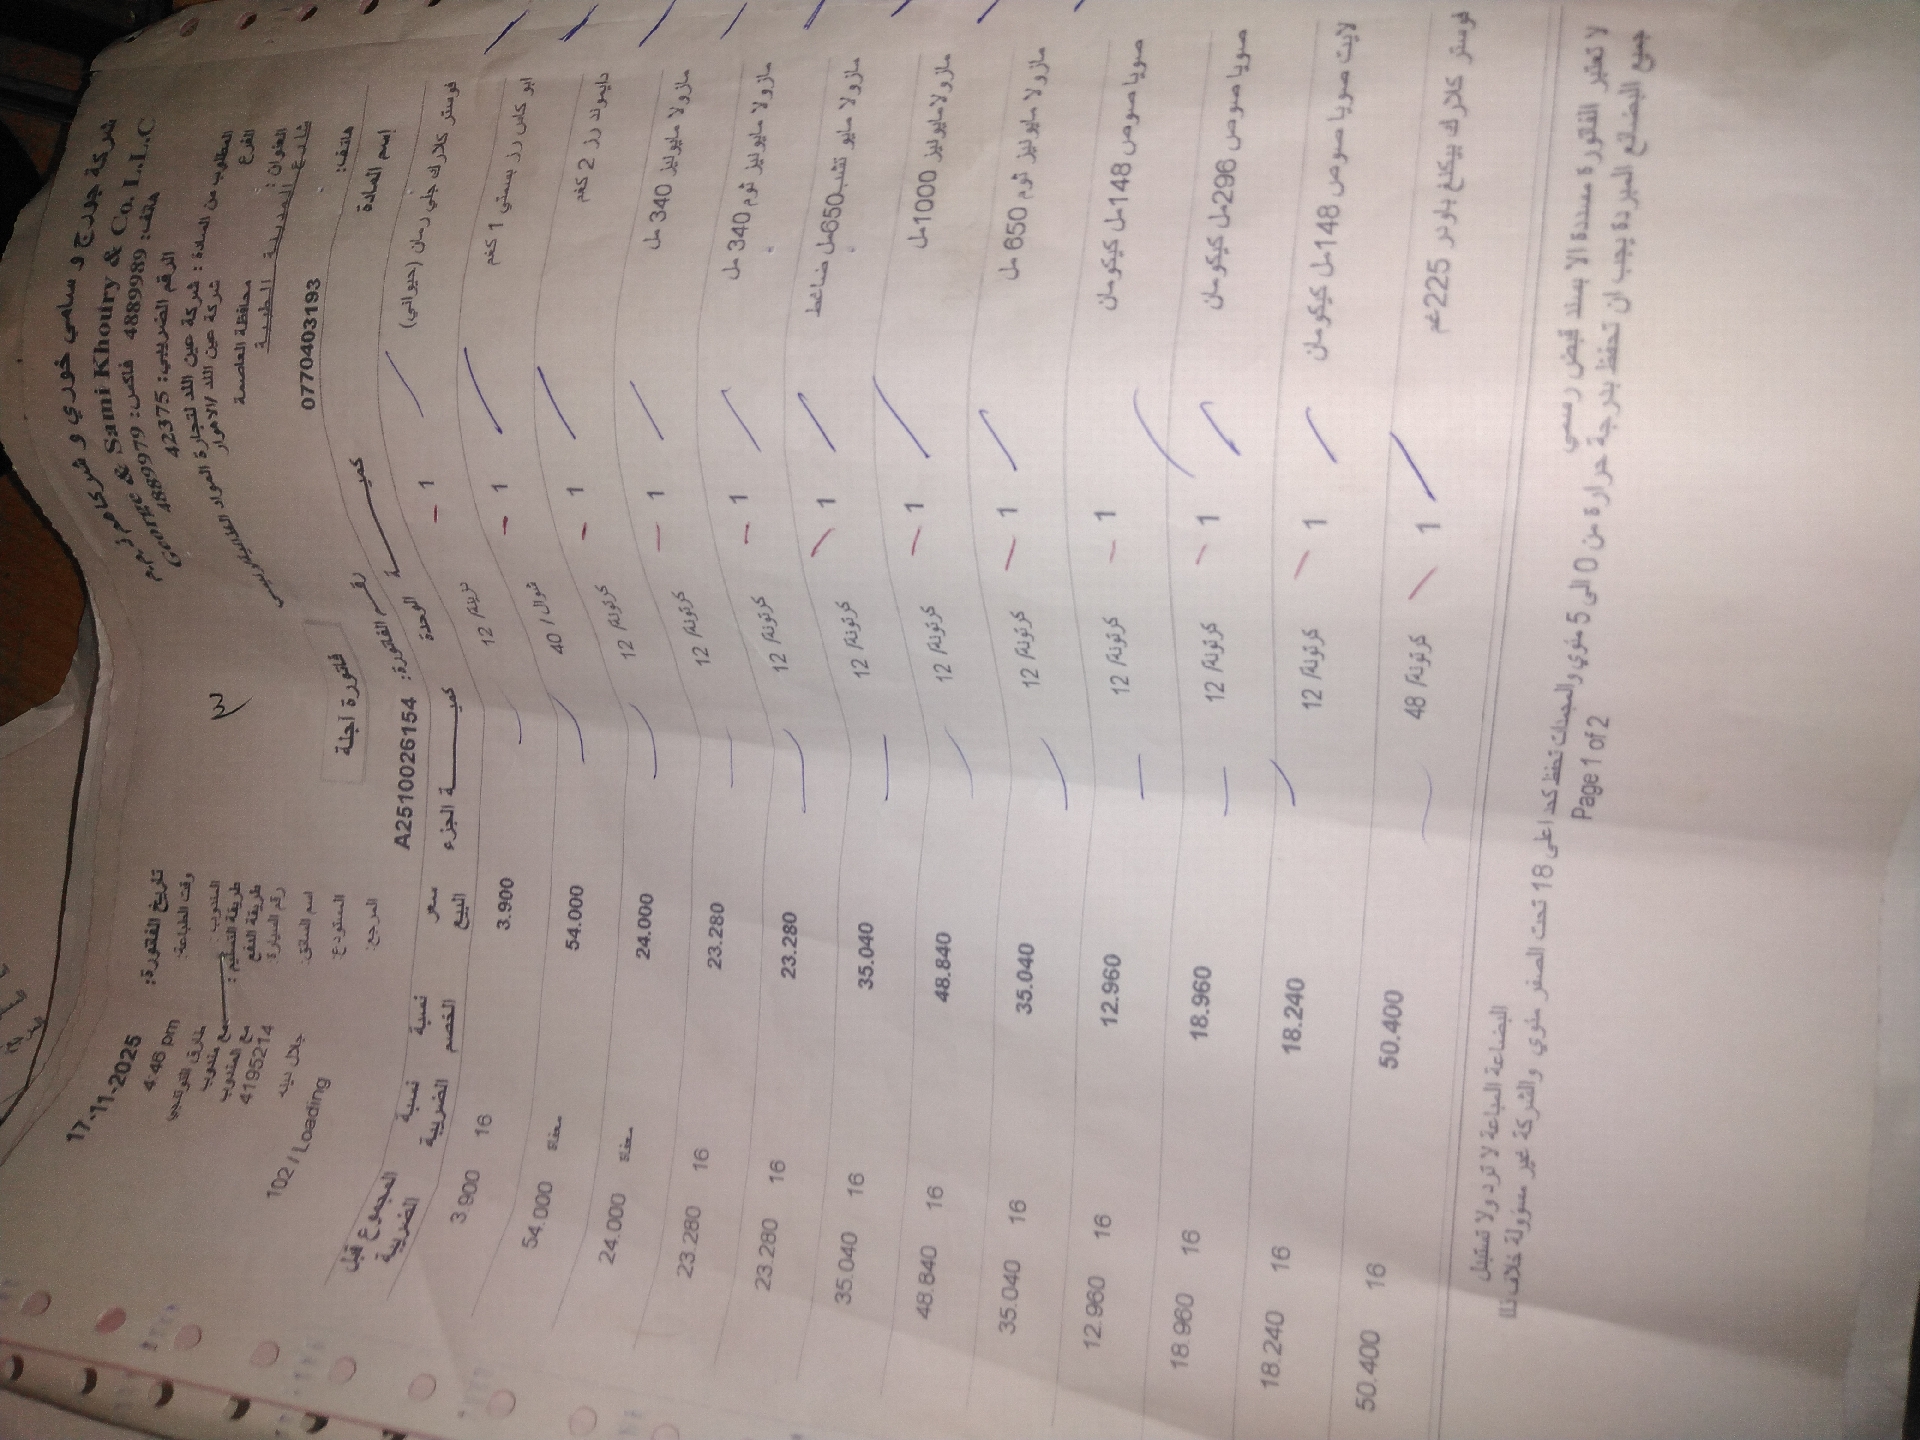 شركة جورج و سامي خوري و شركاهم ذ.م.م
George & Sami Khoury & Co. L.L.C
هاتف: 4889989 فاكس: 4889979
الرقم الضريبي: 42375
المطلوب من السادة : شركة عين اللد لتجارة المواد الغذائية
الفرع شركة عين اللد /الاهرار
العنوان : محافظة العاصمة
شارع المدينة الطبية
هاتف: 0770403193
17-11-2025 تاريخ الفاتورة:
4:46 pm وقت الطباعة:
المندوب:
طريقة التسليم: مع مندوب
طريقة الدفع مع المندوب
رقم السيارة: 4195214
اسم السائق:
المستودع 102 / Loading
المرجع:
فاتورة آجلة
رقم الفاتورة: A2510026154
إسم المادة كميــة الوحدة كميــة الجزء سعر البيع نسبة الخصم نسبة الضريبة المجموع قبل الضريبة
فوستر كلارك جلي رمان (حيواني) 1 درزينة/ 12 3.900 16 3.900
ابو كاس رز بسمتي 1 كغم 1 شوال / 40 54.000 معفاة 54.000
دايموند رز 2 كغم 1 كرتونة/ 12 24.000 معفاة 24.000
مازولا مايونيز 340 مل 1 كرتونة/ 12 23.280 16 23.280
مازولا مايونيز ثوم 340 مل 1 كرتونة/ 12 23.280 16 23.280
مازولا مايو تشب650مل ضاغط 1 كرتونة/ 12 35.040 16 35.040
مازولامايونيز 1000مل 1 كرتونة/ 12 48.840 16 48.840
مازولا مايونيز ثوم 650 مل 1 كرتونة/ 12 35.040 16 35.040
صويا صوص 148مل كيكومان 1 كرتونة/ 12 12.960 16 12.960
صويا صوص 296مل كيكومان 1 كرتونة/ 12 18.960 16 18.960
لايت صويا صوص 148مل كيكومان 1 كرتونة/ 12 18.240 16 18.240
فوستر كلارك بيكنغ باودر 225غم 1 كرتونة/ 48 50.400 16 50.400
لا تعتبر الفاتورة مسددة الا بسند قبض رسمي البضاعة المباعة لا ترد ولا تستبدل
جميع البضائع المبردة يجب ان تحفظ بدرجة حرارة من 0 الى 5 مئوي والمجمدات تحفظ كحد اعلى 18 تحت الصفر مئوي والشركة غير مسؤولة خلاف ذلك
Page 1 of 2